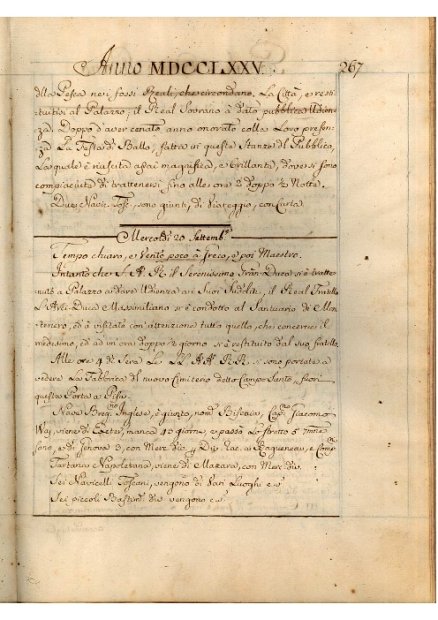 Anno MDCCLXXV. 267
della Pesca nei fossi Reali, che circondano La Città, e resti
tuitosi al Palazzo, il Real Sovrano à dato pubblica Udien
za. Doppo d'aver cenato, anno onorato colla Loro presen
za La Festa di Ballo, fattasi in queste Stanze del Pubblico,
La quale è riuscita assai magnifica, e brillante, dove si sono
compiaciuti di trattenersi fino alle ore 2 doppo ½ Notte.
Due Navic. Tosc. sono giunti, di Viareggio, con
Mercoldì 20 Settemb.
Tempo chiaro, e Vento poco à Greco, e poi Maestro.
Intanto che S. A. R. il Serenissimo Gran Duca si è tratte
nuto a Palazzo a dare Udienza ai Suoi Sudditi, il Real Fratello
L'Arci-Duca Massimiliano si è condotto al Santuario di Mon
tenero, ed à visitato con attenzione tutto quello, che concerne il
medesimo, ed ad un ora doppo ½ giorno si è restituito dal suo fratello.
Alle ore 4 di Sera Le LL. AA. RR. si sono portate a
vedere La Fabbrica del nuovo Cimiterio detto Campo Santo, fuori
questa Porta a Pisa.
Nave Inglese, è giunta, nom. Cap. Giacomo
Way, viene di Exeter, manca giorni, e passò Lo Stretto
sono, e di Genova 3, con Merc. div. e
Tartana Napoletana, viene di Mazara, con Merc. div.
Sei Navicelli Toscani, vengono di Vari Luoghi
Sei piccoli Bastim. div. vengono